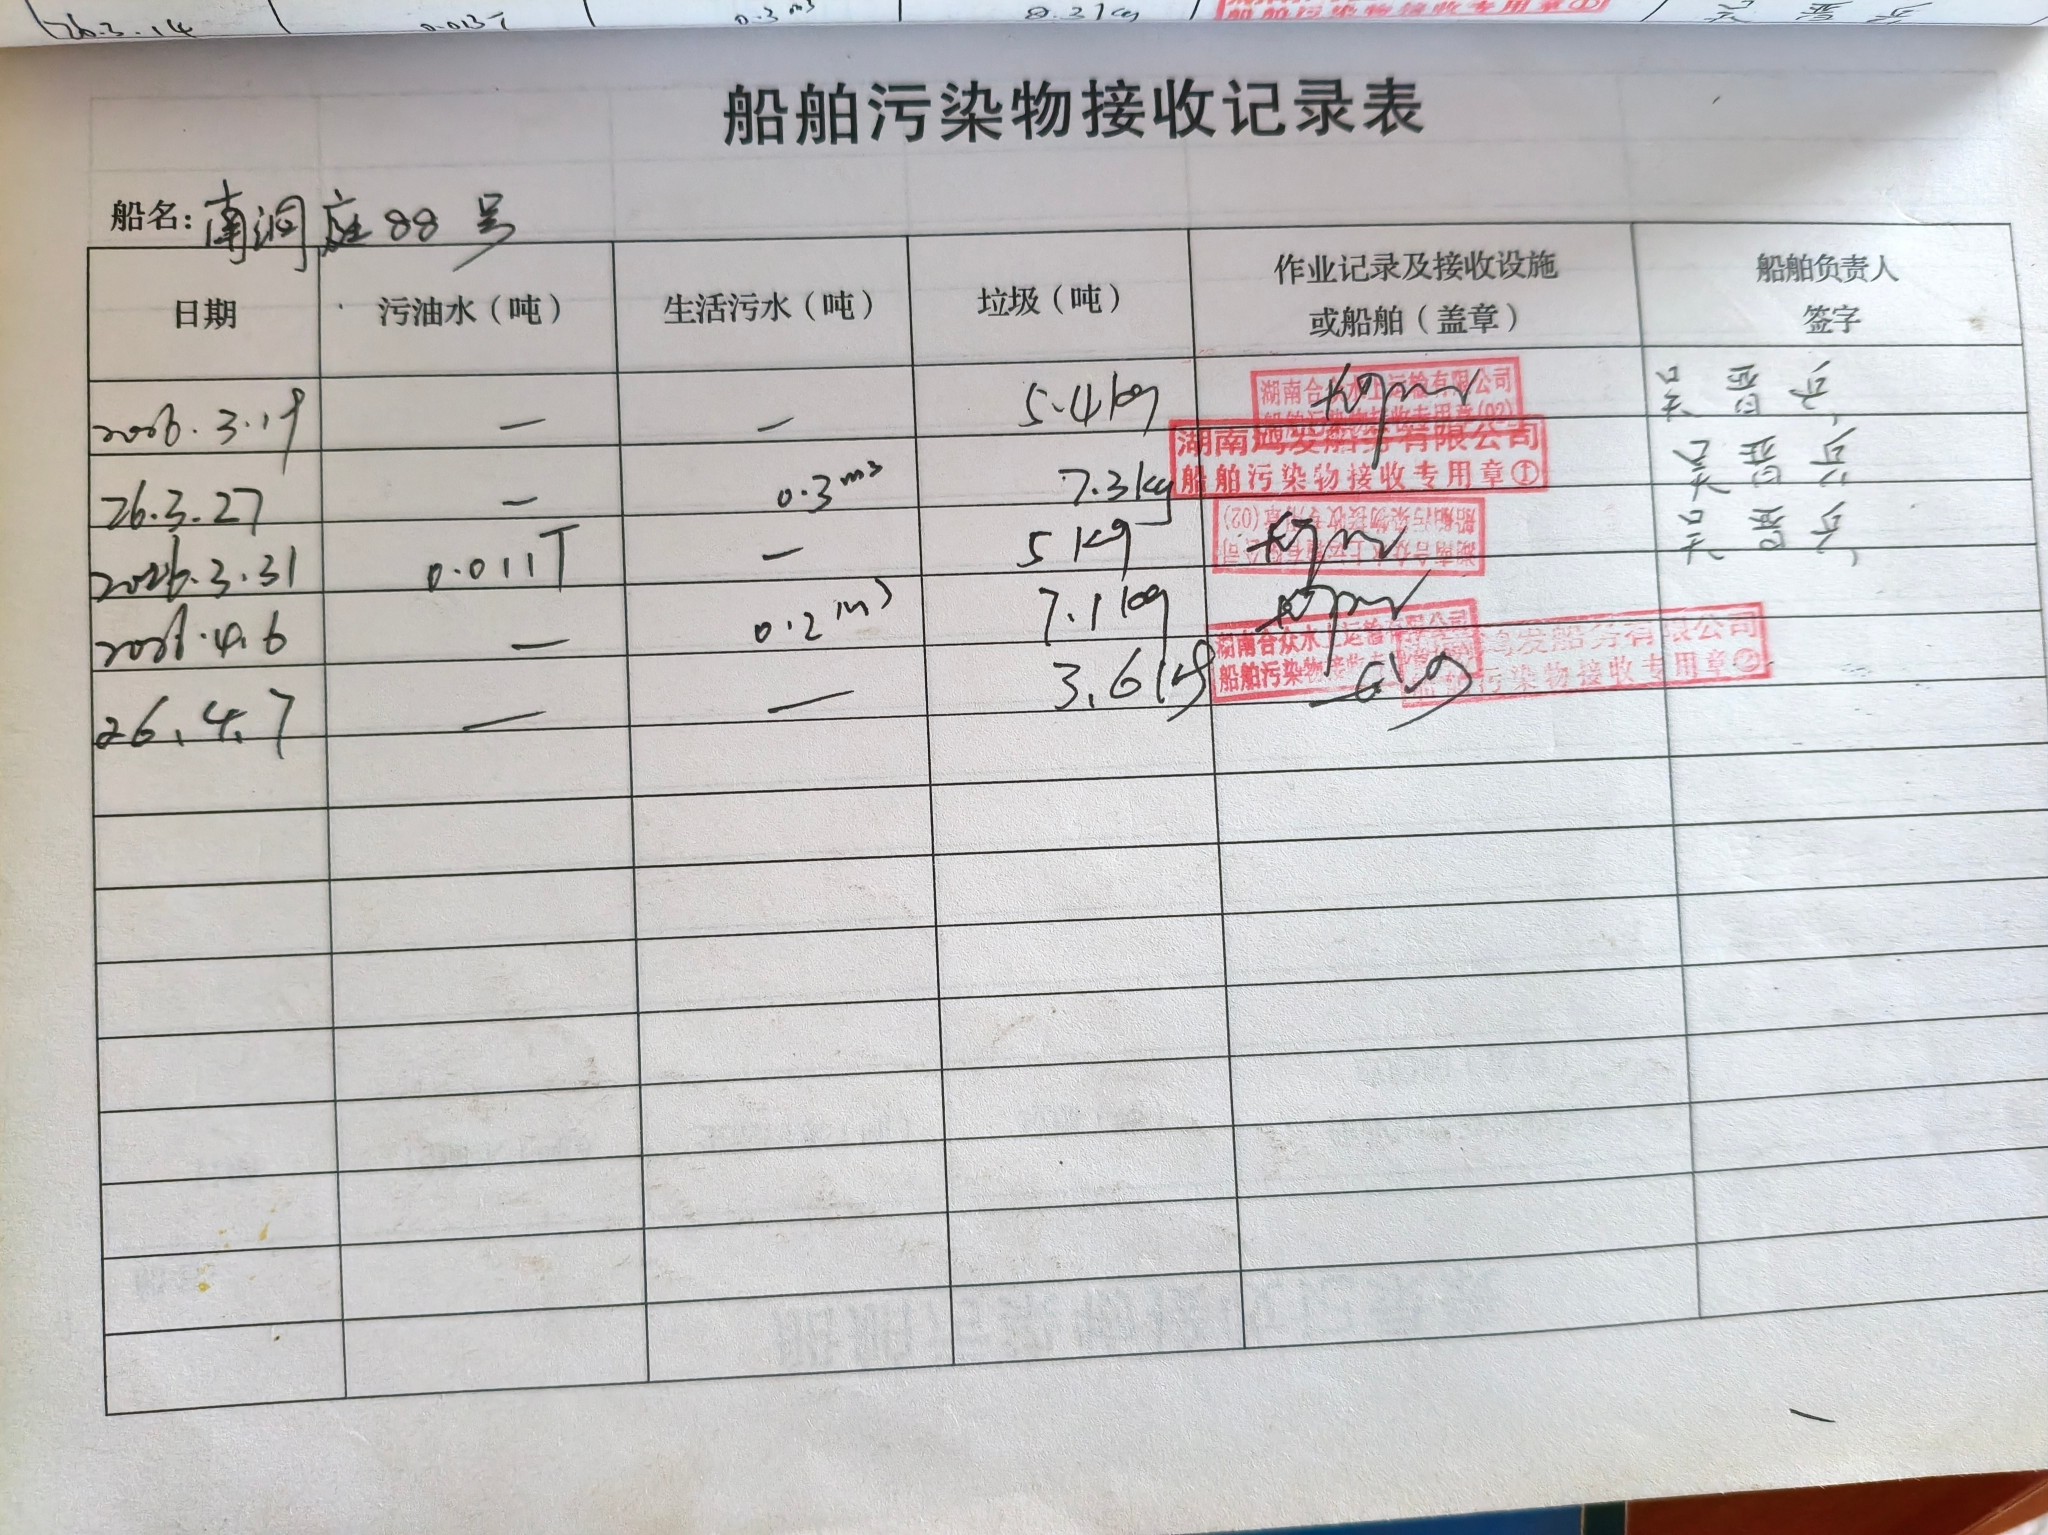 26.3.14 0.013T 0.3m³ 8.21kg 船舶污染物接收专用章①
船舶污染物接收记录表
船名：南洞庭88号
日期 污油水（吨） 生活污水（吨） 垃圾（吨） 作业记录及接收设施或船舶（盖章） 船舶负责人签字
2026.3.19 — — 5.4kg 湖南合众水上运输有限公司
船舶污染物接收专用章(02)
26.3.27 — 0.3m³ 7.3kg 湖南鸿发船务有限公司
船舶污染物接收专用章①
2026.3.31 0.011T — 5kg 湖南合众水上运输有限公司
船舶污染物接收专用章(02)
2026.4.6 — 0.2m³ 7.1kg 湖南合众水上运输有限公司
船舶污染物接收专用章
26.4.7 — — 3.6kg 鸿发船务有限公司
船舶污染物接收专用章②